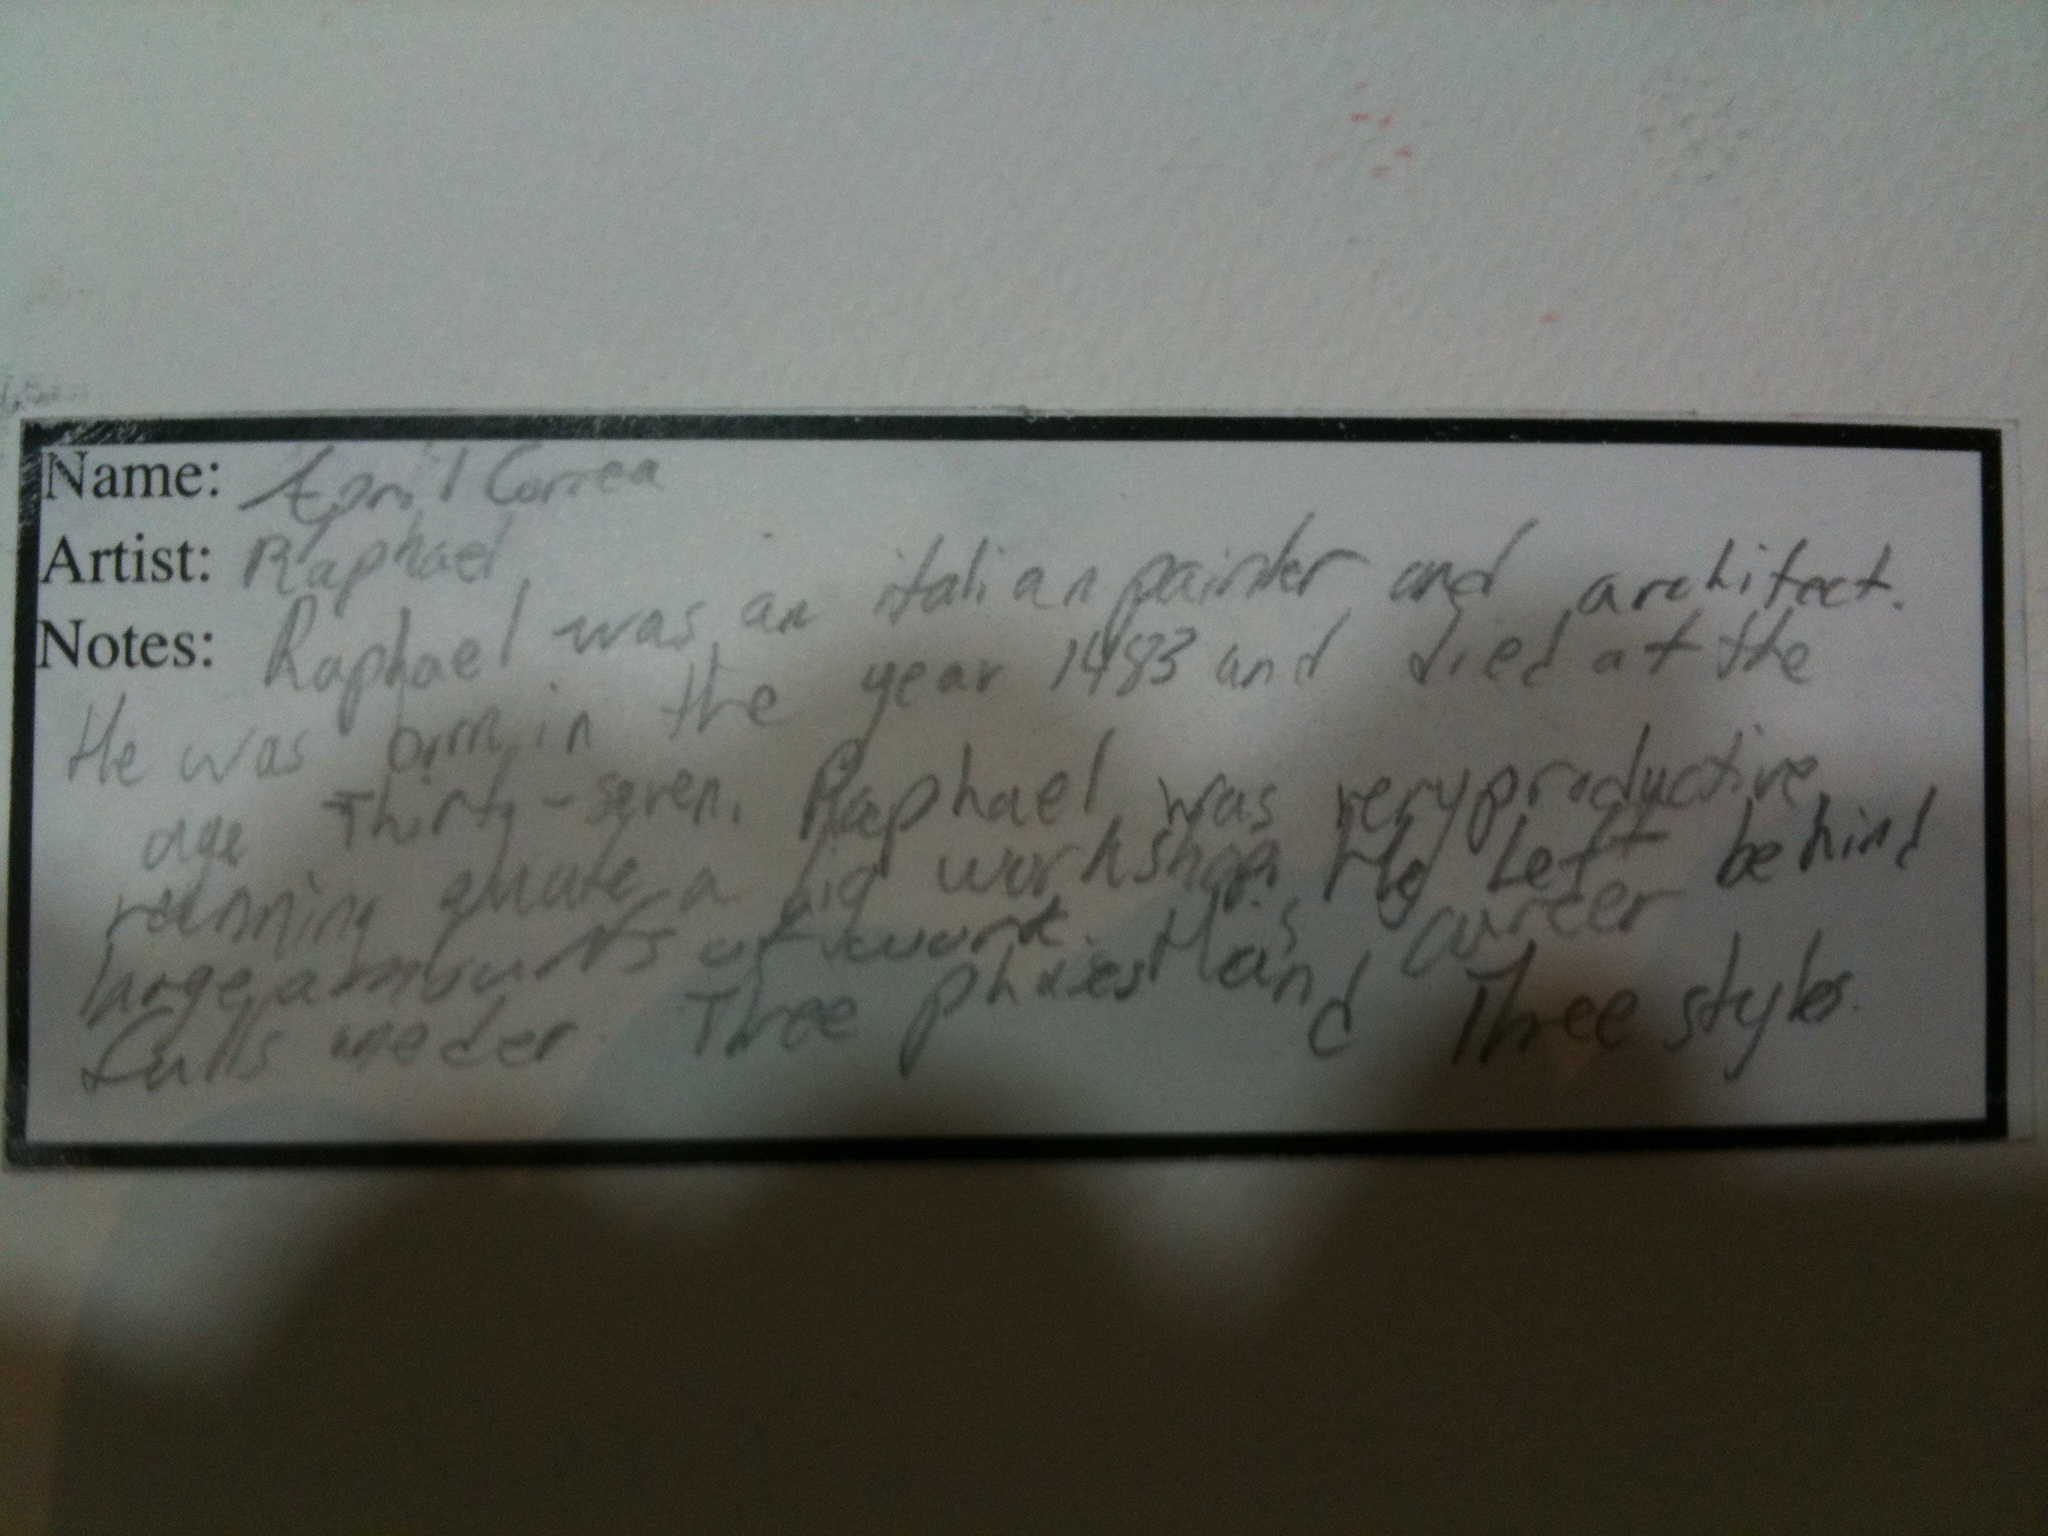 Name: April Correa
Artist: Raphael
Notes: Raphael was an italian painter and architect.
He was born in the year 1483 and died at the
age Thirty-seven. Raphael was very productive
running a big workshop. He Left behind
large amounts of work. His career
falls under Three phases and Three styles.